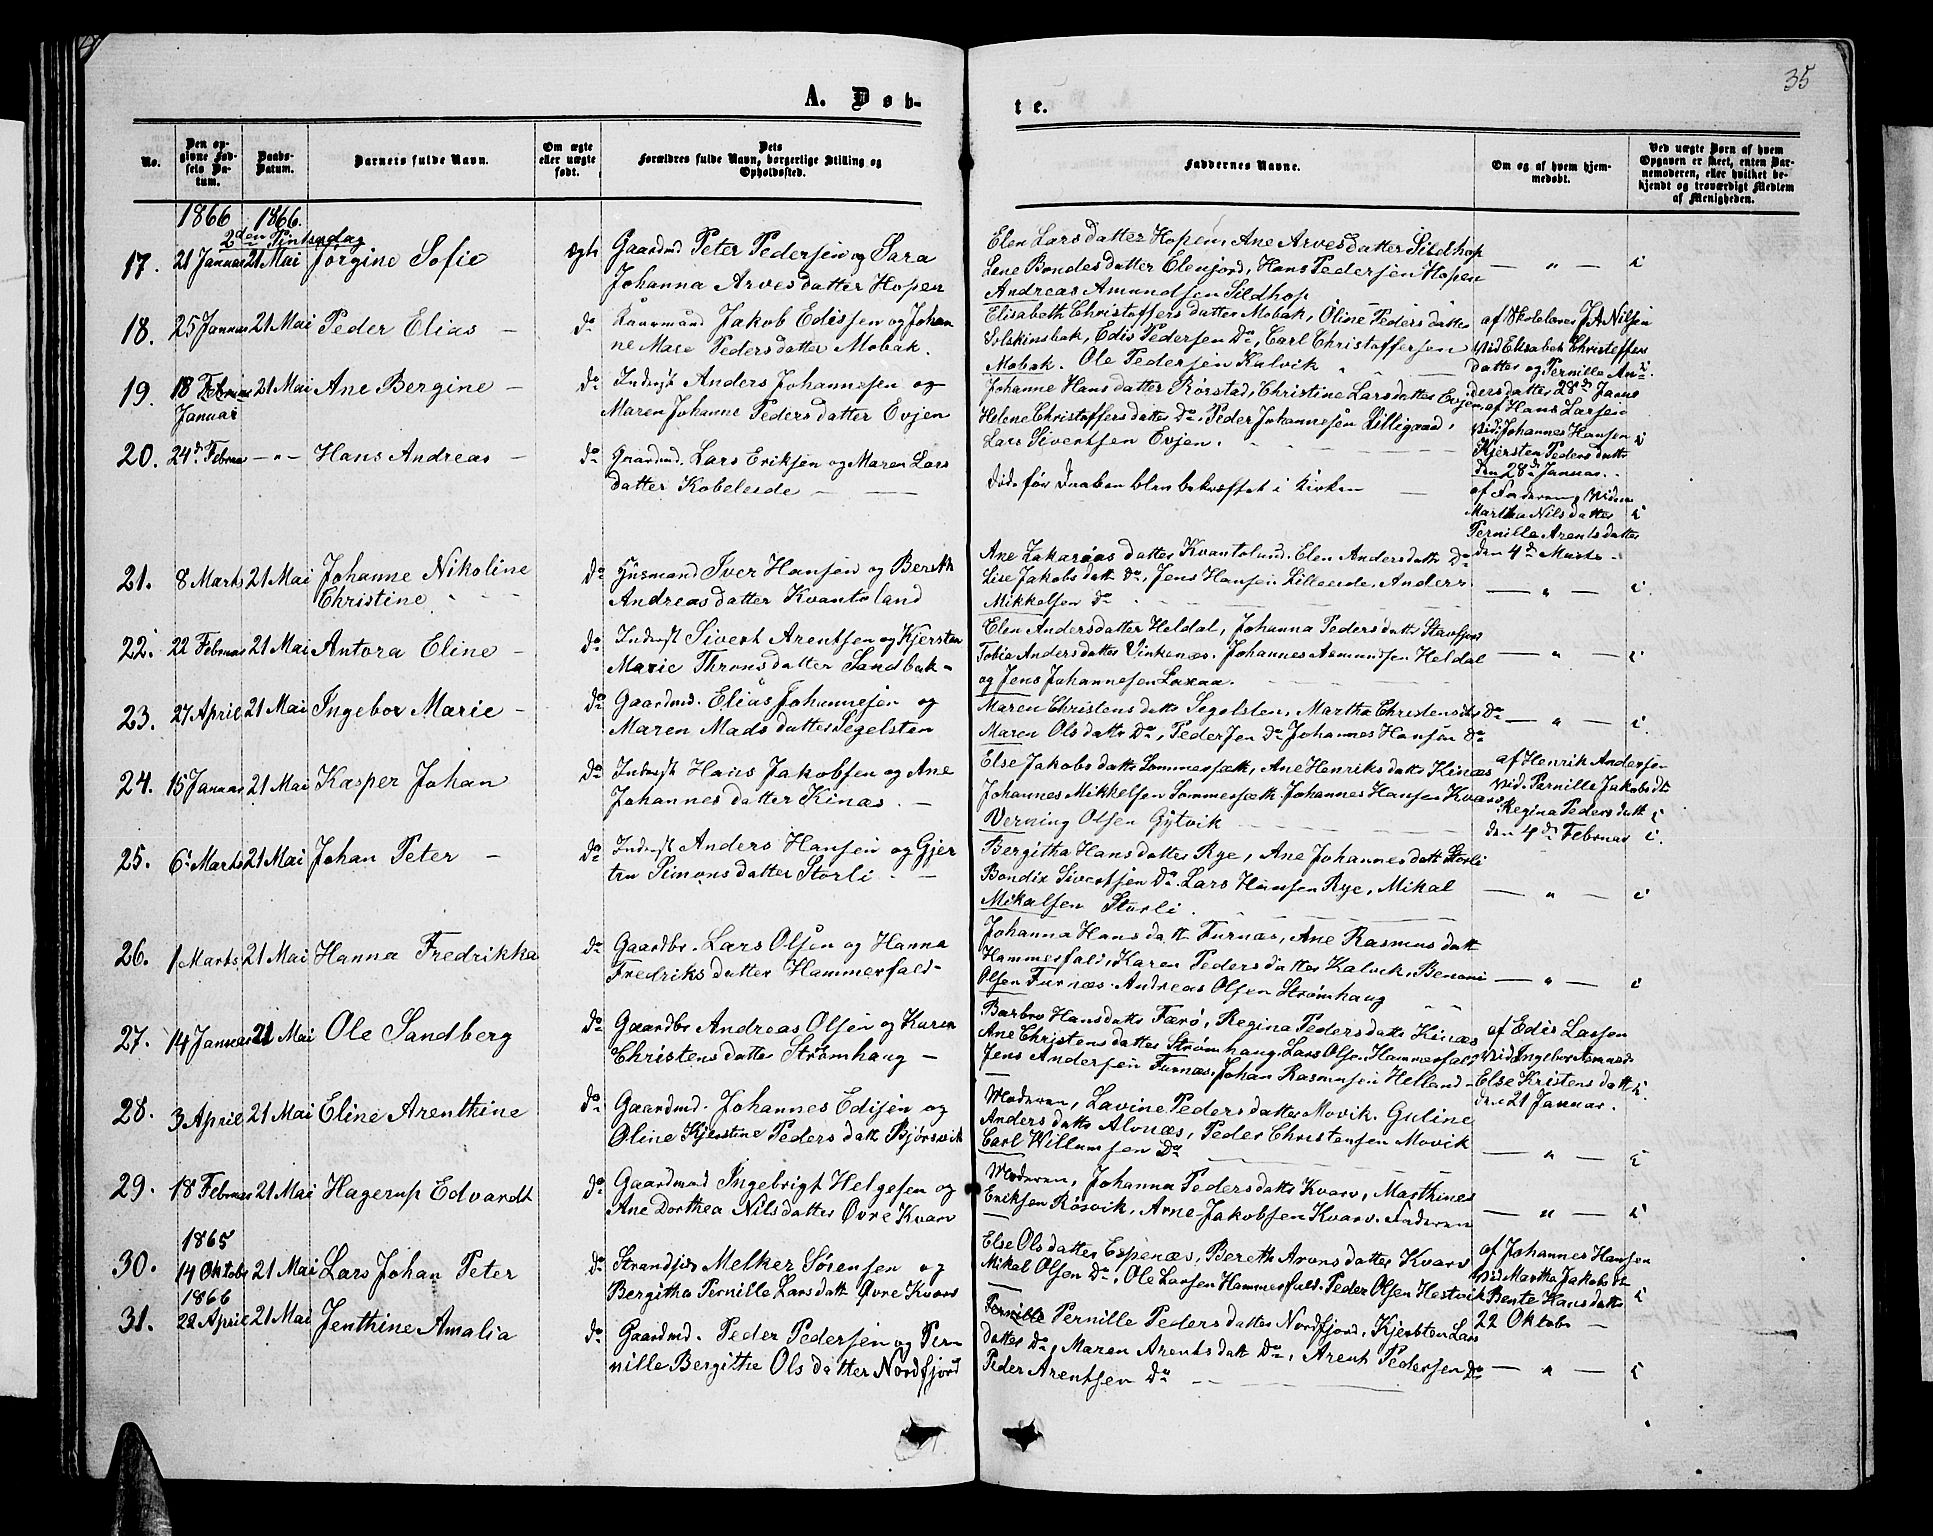 35
A. Døb-
te.
No.
Den op-
givne Fød-
sels Da-
tum.
Daabs-
Datum.
Barnets fulde Navn.
Om ægte
eller uægte
født.
Dets
Forældres fulde Navn, borgerlige Stilling og
Opholdssted.
Faddernes Navne.
Om og af hvem hjem-
medøbt.
Ved uægte Børn af hvem
Opgaven er skeet, enten Bar-
nemoderen, eller hvilket be-
kjendt og troværdigt Medlem
af Menigheden.
1866 1866.
2den Pintsedag
17. 21 Januar 21 Mai Jørgine Sofie ægte
Gaardmd Peter Pedersen og Sara
Johanna Arvesdatter Hopen
Elen Larsdatter Hopen, Ane Arvesdatter Sildhop
Lene Bendesdatter Elenjord, Hans Pedersen Hopen — " —
Andreas Amundsen Sildhop
18. 25 Januar 21 Mai Peder Elias — do
Jakob Edissen og Johan
ne Mare Pedersdatter Mobak.
Elisabeth Christoffersdatter Mobak, Oline Pedersdatter
Solskinsbak, Edis Pedersen Do, Carl Christoffersen
Mobak. Ole Pedersen Kalvik
af Skolelærer J A Nilsen
Vid Elisabet Christoffers
datter og Pernille An-
dersdatter 28de Januar
19. 18 Februar
Januar
21 Mai Ane Bergine — do
Inderst Anders Johannesen og
Maren Johanne Pedersdatter Evjen
Johanne Hansdatter Rørstad, Christine Larsdatter Evjen
Helene Christoffersdatter Do, Peder Johannesen Lilligaard,
Lars Sivertsen Evjen.
af Hans Larsen
Vid. Johannes Hansen
Kjersten Pedersdatter
den 28de Januar.
20. 24de Februar — " — Hans Andreas — do
Gaardmd. Lars Eriksen og Maren Lars
datter Kobeleide — —
Døde før Daaben blev bekræftet i Kirken
af Faderen, Vidne
Martha Nilsdatter
Pernille Arentsdatter
den 4de Marts —
21. 8 Marts 21 Mai Johanne Nikoline
Christine
do
Husmand Iver Hansen og Bereth
Andreasdatter Kvantoland
Ane Zakariasdatter Kvantoland. Elen Andersdatter Do
Lise Jakobsdatt Do, Jens Hansen Lilleeide, Anders
Mikkelsen Do — " —
22. 22 Februar 21 Mai Antora Eline — do
Inderst Sivert Arentsen og Kjersten
Marie Thronsdatter Sandbak —
Elen Andersdatter Heldal, Johanna Pedersdatter
Tobia Andersdatter Vinkenæs. Johannes Asmundsen Heldal — " —
og Jens Johannesen Laxaa.
23. 27 April 21 Mai Ingebor Marie — do
Gaardmd. Elias Johannesen og
Maren Madsdatter Segelsten
Maren Christensdatter Segelsten, Martha Christensdtr Do
Maren Olsdattr Do, Peder Jen Do Johannes Hansen Do — " —
24. 15 Januar 21 Mai Kasper Johan do
Inderst Hans Jakobsen og Ane
Johannesdatter Kinæs. —
Else Jakobsdattr Sommersæth, Ane Henriksdattr Kinæs
Johannes Mikkelsen Sommersæth. Johannes Hansen Kvarv
Verning Olsen Gytvik
af Henrik Andersen
Vid. Pernille Jakobsdt
Regina Pedersdatt
den 4de Februar
25. 6. Marts 21 Mai Johan Peter — do
Inderst Anders Hansen og Gjer
tru Simonsdatter Storli. —
Bergitha Hansdatter Rye, Ane Johannesdatt Storli
Bondix Sivertsen Do. Lars Hansen Rye, Mikal
Mikalsen Storli. — " —
26. 1 Marts 21 Mai Hanna Fredrikka do
Gaardbr. Lars Olsen og Hanna
Fredriksdatter Hammerfald —
Johanna Hansdatt Furnæs, Ane Rasmusdatt
Hammerfald, Karen Pedersdatter Kalvik, Benoni
Olsen Furnæs. Andreas Olsen Strømhaug — " —
27. 14 Januar 21 Mai Ole Sandberg do
Gaardbr Andreas Olsen og Karen
Christensdatter Strømhaug —
Barbro Hansdatter Færø, Regina Pedersdatter Kinæs
Ane Christensdatter Strømhaug. Lars Olsen Hammerfald
Jens Andersen Furnæs. Johan Rasmusen Helland —
af Edis Larsen
Vid Ingebor Asmunds
Else Kristensdatt
den 21 Januar.
28. 3 April 21 Mai Eline Arenthine do
Gaardmd. Johannes Edisen og
Oline Kjerstine Pedersdatt Bjørsvik
Moderen, Lavine Pedersdatter Movik. Guline
Andersdatter Alvnæs, Peder Christensen Movik
Carl Willumsen Do — " —
29. 18 Februar 21 Mai Hagerup Edvardt do
Gaardmand Ingebrigt Helgesen og
Ane Dorthea Nilsdatter Øvre Kvarv
Moderen, Johanna Pedersdatter Kvarv, Marthines
Eriksen Røsvik, Arne Jakobsen Kvarv. Faderen — " —
1865
30. 14 Oktobr 21 Mai Lars Johan Peter do
Strandsid Melker Sørensen og
Bergitha Pernille Larsdatt Øvre Kvarv
Else Olsdatter Espenæs, Bereth Aronsdatter Kvarv
Mikal Olsen Do, Ole Larsen Hammerfald. Peder Olsen Hestvik
af Johannes Hansen
Vid Martha Jakobsdt
Bente Hansdatter
22 Oktobr —
1866
31. 22 April 21 Mai Jenthine Amalia do
Gaardmd. Peder Pedersen og Per-
nille Bergithe Olsdatter Nordfjord
Pernille Pedersdatter Nordfjord, Kjersten Lars
datter Do, Maren Arentsdatt Do, Arent Pedersen Do
Peder Arentsen Do — " —